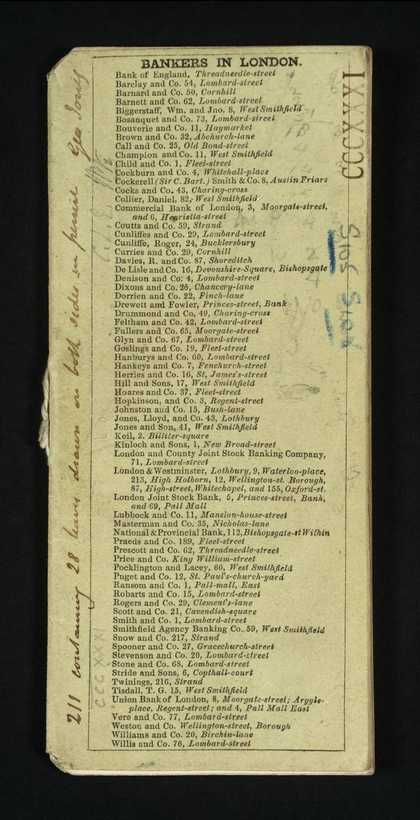 BANKERS IN LONDON.
Bank of England, Threadneedle-street
Barclay and Co. 54, Lombard-street
Barnard and Co. 50, Cornhill
Barnett and Co. 62, Lombard-street
Biggerstaff, Wm. and Jno. 8, West Smithfield
Bosanquet and Co. 73, Lombard-street
Bouverie and Co. 11, Haymarket
Brown and Co. 32, Abchurch-lane
Call and Co. 25, Old Bond-street
Champion and Co. 11, West Smithfield
Child and Co. 1, Fleet-street
Cockburn and Co. 4, Whitehall-place
Cockerell (Sir C. Bart.) Smith & Co. 8, Austin Friars
Cocks and Co. 43, Charing-cross
Collier, Daniel, 82, West Smithfield
Commercial Bank of London, 3, Moorgate-street,
and 6, Henrietta-street
Coutts and Co. 59, Strand
Cunliffes and Co. 29, Lombard-street
Cunliffe, Roger, 24, Bucklersbury
Curries and Co. 29, Cornhill
Davies, R. and Co. 87, Shoreditch
De Lisle and Co. 16, Devonshire-Square, Bishopsgate
Denison and Co. 4, Lombard-street
Dixons and Co. 25, Chancery-lane
Dorrien and Co. 22, Finch-lane
Drewett and Fowler, Princes-street, Bank
Drummond and Co. 49, Charing-cross
Feltham and Co. 42, Lombard-street
Fullers and Co. 65, Moorgate-street
Glyn and Co. 67, Lombard-street
Goslings and Co. 19, Fleet-street
Hanburys and Co. 60, Lombard-street
Hankeys and Co. 7, Fenchurch-street
Herries and Co. 16, St. James's-street
Hill and Sons, 17, West Smithfield
Hoares and Co. 37, Fleet-street
Hopkinson, and Co. 3, Regent-street
Johnston and Co. 15, Bush-lane
Jones, Lloyd, and Co. 43, Lothbury
Jones and Son, 41, West Smithfield
Keil, 2. Billiter-square
Kinloch and Sons, 1, New Broad-street
London and County Joint Stock Banking Company,
71, Lombard-street
London & Westminster, Lothbury, 9, Waterloo-place,
213, High Holborn, 12, Wellington-st. Borough,
87, High-street, Whitechapel, and 155, Oxford-st.
London Joint Stock Bank, 5, Princes-street, Bank,
and 69, Pall Mall
Lubbock and Co. 11, Mansion-house-street
Masterman and Co. 35, Nicholas-lane
National & Provincial Bank, 112, Bishopsgate-st Within
Praeds and Co. 189, Fleet-street
Prescott and Co. 62, Threadneedle-street
Price and Co. King William-street
Pocklington and Lacey, 60, West Smithfield
Puget and Co. 12, St. Paul's-church-yard
Ransom and Co. 1, Pall-mall, East
Robarts and Co. 15, Lombard-street
Rogers and Co. 29, Clement's-lane
Scott and Co. 21, Cavendish-square
Smith and Co. 1, Lombard-street
Smithfield Agency Banking Co. 59, West Smithfield
Snow and Co. 217, Strand
Spooner and Co. 27, Gracechurch-street
Stevenson and Co. 20, Lombard-street
Stone and Co. 68, Lombard-street
Stride and Sons, 6, Copthall-court
Twinings, 216, Strand
Tisdall, T. G. 15, West Smithfield
Union Bank of London, 8, Moorgate-street; Argyle-
place, Regent-street; and 4, Pall Mall East
Vere and Co. 77, Lombard-street
Weston and Co. Wellington-street, Borough
Williams and Co. 20, Birchin-lane
Willis and Co. 76, Lombard-street
211 containing 28 leaves drawn on both sides in pencil Geo Jones
CCCXXXI
5105
CCCXXXI